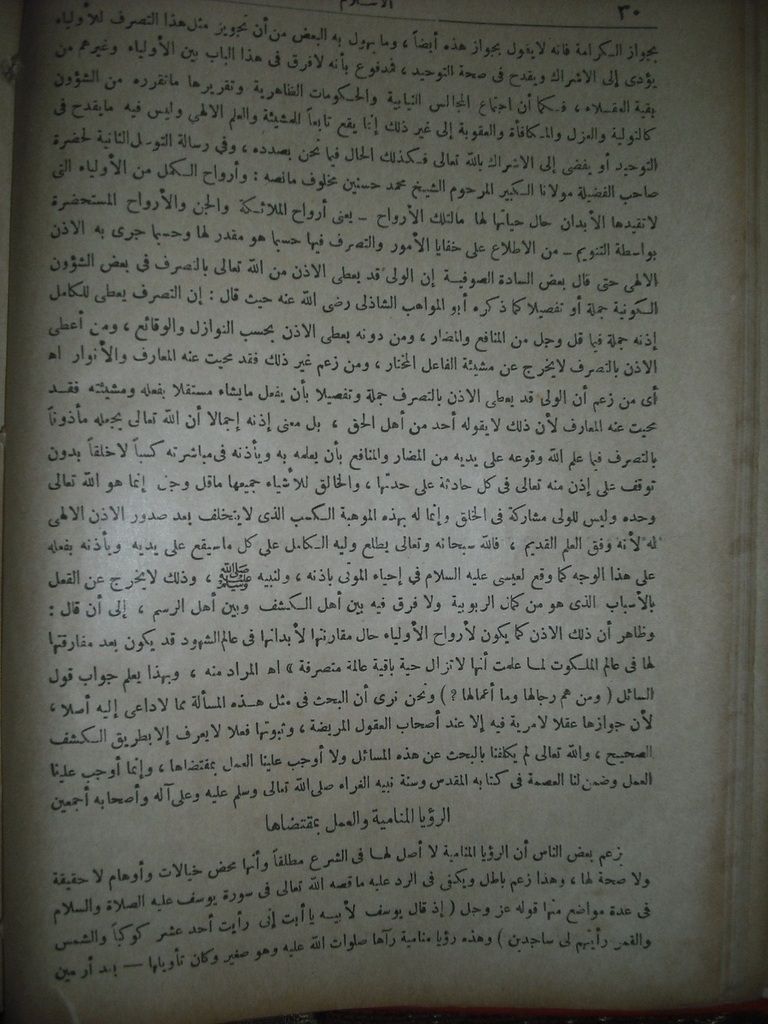 ٣٠
الاسلام
بجواز الكرامة فانه لايقول بجواز هذه أيضاً ، وما يهول به البعض من أن تجويز مثل هذا التصرف للأولياء
يؤدى إلى الاشراك ويقدح فى صحة التوحيد ، فمدفوع بأنه لافرق فى هذا الباب بين الأولياء وغيرهم من
بقية العقلاء ، فكما أن اجتماع المجالس النيابية والحكومات الظاهرية وتقريرها ماتقرره من الشؤون
كالتولية والعزل والمكافأة والعقوبة إلى غير ذلك إنما يقع تابعاً للمشيئة والعلم الالهى وليس فيه مايقدح فى
التوحيد أو يفضى إلى الاشراك بالله تعالى فكذلك الحال فيما نحن بصدده ، وفى رسالة التوسل الثانية لحضرة
صاحب الفضيلة مولانا الكبير المرحوم الشيخ محمد حسنين مخلوف مانصه : وأرواح الكمل من الأولياء التى
لاتقيدها الأبدان حال حياتها لها مالتلك الأرواح ــ يعنى أرواح الملائكة والجن والأرواح المستحضرة
بواسطة التنويم ــ من الاطلاع على خفايا الأمور والتصرف فيها حسبما هو مقدر لها وحسبما جرى به الاذن
الالهى حتى قال بعض السادة الصوفية إن الولى قد يعطى الاذن من الله تعالى بالتصرف فى بعض الشؤون
الكونية جملة أو تفصيلا كما ذكره أبو المواهب الشاذلى رضى الله عنه حيث قال : إن التصرف يعطى للكامل
إذنه جملة فيما قل وجل من المنافع والمضار ، ومن دونه يعطى الاذن بحسب النوازل والوقائع ، ومن أعطى
الاذن بالتصرف لايخرج عن مشيئة الفاعل المختار ، ومن زعم غير ذلك فقد محيت عنه المعارف والأنوار اهـ
أى من زعم أن الولى قد يعطى الاذن بالتصرف جملة وتفصيلا بأن يفعل مايشاء مستقلا بفعله ومشيئته فقد
محيت عنه المعارف لأن ذلك لا يقوله أحد من أهل الحق ، بل معنى إذنه إجمالا أن الله تعالى يجعله مأذوناً
بالتصرف فيما علم الله وقوعه على يديه من المضار والمنافع بأن يعلمه به ويأذنه فى مباشرته كسباً لا خلقاً بدون
توقف على إذن منه تعالى فى كل حادثة على حدتها ، والخالق للأشياء جميعها ماقل وجل إنما هو الله تعالى
وحده وليس للولى مشاركة فى الخلق وإنما له بهذه الموهبة الكسب الذى لا يتخلف بعد صدور الاذن الالهى
له لأنه وفق العلم القديم ، فالله سبحانه وتعالى يطلع وليه الكامل على كل ماسيقع على يديه ويأذنه بفعله
على هذا الوجه كما وقع لعيسى عليه السلام فى إحياء الموتى باذنه ، ولنبيه ﷺ ، وذلك لايخرج عن الفعل
بالأسباب الذى هو من كمال الربوبية ولا فرق فيه بين أهل الكشف وبين أهل الرسم ، إلى أن قال :
وظاهر أن ذلك الاذن كما يكون لأرواح الأولياء حال مقارنتها لأبدانها فى عالم الشهود قد يكون بعد مفارقتها
لها فى عالم الملكوت لما علمت أنها لاتزال حية باقية عالمة متصرفة » اهـ المراد منه ، وبهذا يعلم جواب قول
السائل ( ومن هم رجالها وما أعمالها ? ) ونحن نرى أن البحث فى مثل هذه المسألة مما لاداعى إليه أصلا ،
لأن جوازها عقلا لامرية فيه إلا عند أصحاب العقول المريضة ، وثبوتها فعلا لايعرف إلا بطريق الكشف
الصحيح ، والله تعالى لم يكلفنا بالبحث عن هذه المسائل ولا أوجب علينا العمل بمقتضاها ، وإنما أوجب علينا
العمل وضمن لنا العصمة فى كتابه المقدس وسنة نبيه الغراء صلى الله تعالى وسلم عليه وعلى آله وأصحابه أجمعين
الرؤيا المنامية والعمل بمقتضاها
زعم بعض الناس أن الرؤيا المنامية لا أصل لها فى الشرع مطلقاً وأنها محض خيالات وأوهام لا حقيقة
ولا صحة لها ، وهذا زعم باطل ويكفى فى الرد عليه ماقصه الله تعالى فى سورة يوسف عليه الصلاة والسلام
فى عدة مواضع منها قوله عز وجل ( إذ قال يوسف لأبيه يا أبت إنى رأيت أحد عشر كوكباً والشمس
والقمر رأيتهم لى ساجدين ) وهذه رؤيا منامية رآها صلوات الله عليه وهو صغير وكان تأويلها ــ بعد أربعين